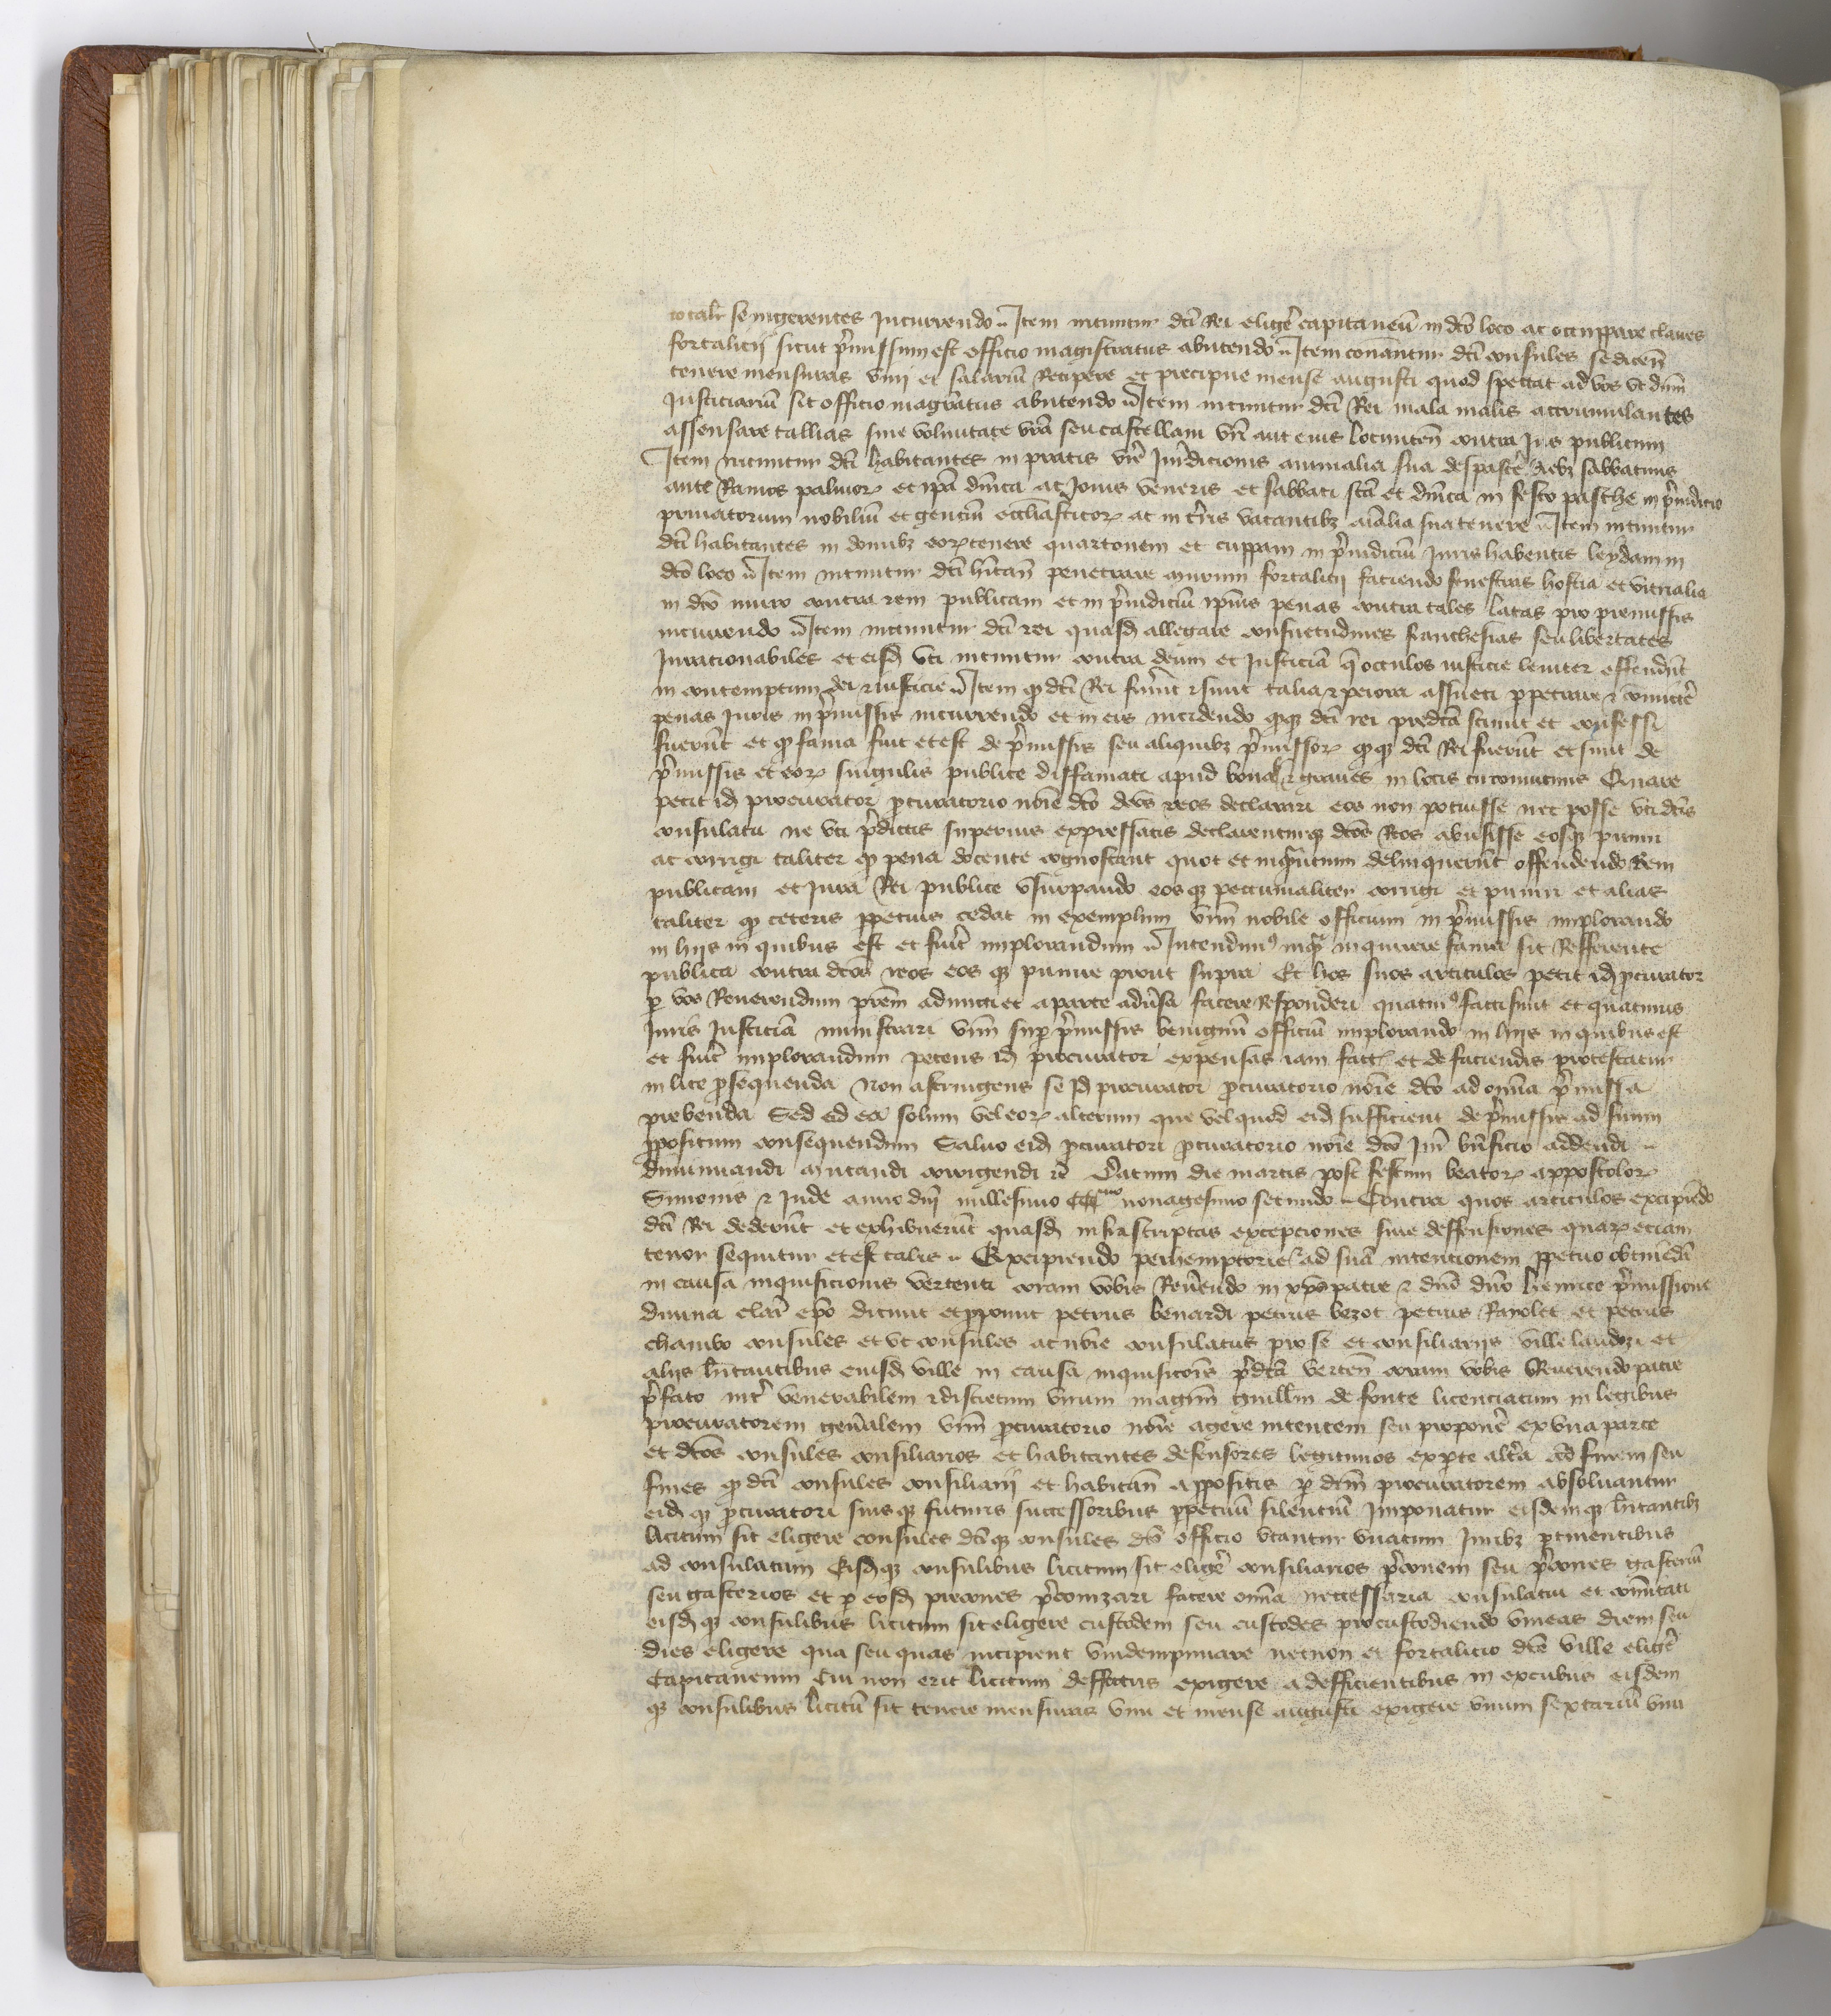 totalr se ingerentes Incurrendo Item nituntur dci Rei eligere capitaneu in dco loco ac occuppare claves
fortalicij sicut pmissum est officio magistratus abutendo Item conantur dci consules se dicen
tenere mensuras vini et salariu Recipere et precipue mense augusti quod spectat ad vos ut dnm
Justiciariu sic officio magratus abutendo Item nituntur dci Rei mala malis accumulantes
assensare tallias sine voluntate vra seu castellani vri aut eius locumten contra Jus publicum
Item nituntur dci habitantes in pratis vre Jurdicionis animalia sua despascere diebz sabbatinis
ante Ramos palmor et ipa dnica ac Jovis veneris et sabbati sca et dnica in festo pasche in piudicio
privatorum nobiliu et genciu ecclasticor ac in tris vacantibz aialia sua tenere Item nituntur
dci habitantes in domibz eor tenere quartonem et cuppam in piudiciu Juris habentis leydam in
dco loco Item nituntur dci hitan penetrare murum fortalicij faciendo fenestras hostia et vitrialia
in dco muro contra rem publicam et in piudiciu ipius penas contra tales latas pro premissis
incurrendo Item nituntur dci rei quasd allegare consuetudines franchesias seu libertates
Irracionabiles et eisd uti nituntur contra deum et Justicia q occulos iusticie leviter offendut
in contemptum dei & iusticie Item q dci Rei fuerut & sunt talia & peiora assueti ppetrare & comicte
penas Juris in pmissis incurrendo et in eis incidendo qq dci rei predca sciunt et confessi
fuerut et q fama fuit et est de pmissis seu aliquibz pmissor qq dci Rei fuerut et sunt de
pmissis et eor singulis publice diffamati apud bonos & graves in locis circumvicinis Quare
petit id procurator pcuratorio noie dco dcos reos declarari eos non potuisse nec posse uti dcis
consulatu ne uti pdictis superius expressatis declarenturq dcos Reos abusisse eosq puniri
ac corrigi taliter q pena docente cognoscant quot et inquatum delinquerut offendendo Rem
publicam et Jura Rei publice usurpando eos q peccunialiter corrigi et puniri et alias
taliter q ceteris ppetuis cedat in exemplum vrm nobile officium in pmissis implorando
in hijs in quibus est et fuit implorandum Intendim inqua inquirere fama sic Refferente
publica contra dcos reos eos q punire prout supra Et hos suos articulos petit id pcurator
p vos Reverendum prem admicti et a parte adversa facere Responderi quatin facti sunt et quatinus
Juris Justicia ministrari vrm sup pmissis benignu officiu implorando in hijs in quibus est
et fuit implorandum petens id procurator expensas iam fact et de faciendis protestatur
in lite psequenda Non astringens se id procurator pcuratorio noie dco ad omia pmissa
probenda Sed ad ea solum vel eor alterum que vel quod eid sufficient de pmissis ad suum
ppositum consequendum Salvo eid pcuratori pcuratorio noie dco Jur bnficio addendi
diminuandi mutandi corrigendi &c Datum die martis post festum beator appostolor
Simonis & Jude anno dni millesimo ccc nonagesimo secundo Contra quos articulos excipiedo
dci Rei dederut et exhibuerut quasd infrascriptas excepciones sive deffensiones quar eciam
tenor sequitur et est talis Excipiendo perhemptorie ad sua intentionem ppetuo obtinenda
in causa inquisicionis vertenti coram vobis Reverendo in xpo patre & dno dno henrico pmissione
divina clari epo dicunt et pponunt petrus benardi petrus bezot petrus Ravolet et petrus
chambo consules et ut consules ac noie consulatus pro se et consiliariis ville laudozi et
aliis hitantibus eiusd ville in causa inquisicois pdca verten coram vobis Reverendo patre
pfato inter venerabilem & discretum virum magrm guillm de fonte licenciatum in legibus
procuratorem genalem vrm pcuratorio noie agere intentem seu proponere ex una parte
et dcos consules consiliarios et habitantes defensores legitimos ex pte altera ad finem seu
fines q dci consules consiliarij et habitan a ppositis p dcm procuratorem absolvantur
eid q pcuratori suis q futuris successoribus ppetuu silenciu Imponatur eisdemq hitantibz
licitum sit eligere consules dciq consules dco officio utantur unacum Juribz ptinentibus
ad consulatum Eisdq consulibus licitum sit eligere consiliarios pconem seu pcones gasteriu
seu gasterios et p eosd precones pconizari facere omia neccessaria consulatui et comitati
eisd q consulibus licitum sit eligere custodem seu custodes pro custodiendo vineas diem seu
dies eligere qua seu quas incipient vindempniare necnon et fortalicio dce ville eligere
Capitaneum Cui non erit licitum deffectus exigere a defficientibus in excubiis eisdem
q consulibus licitu sit tenere mensuras vini et mense augusti exigere unum sextariu vini